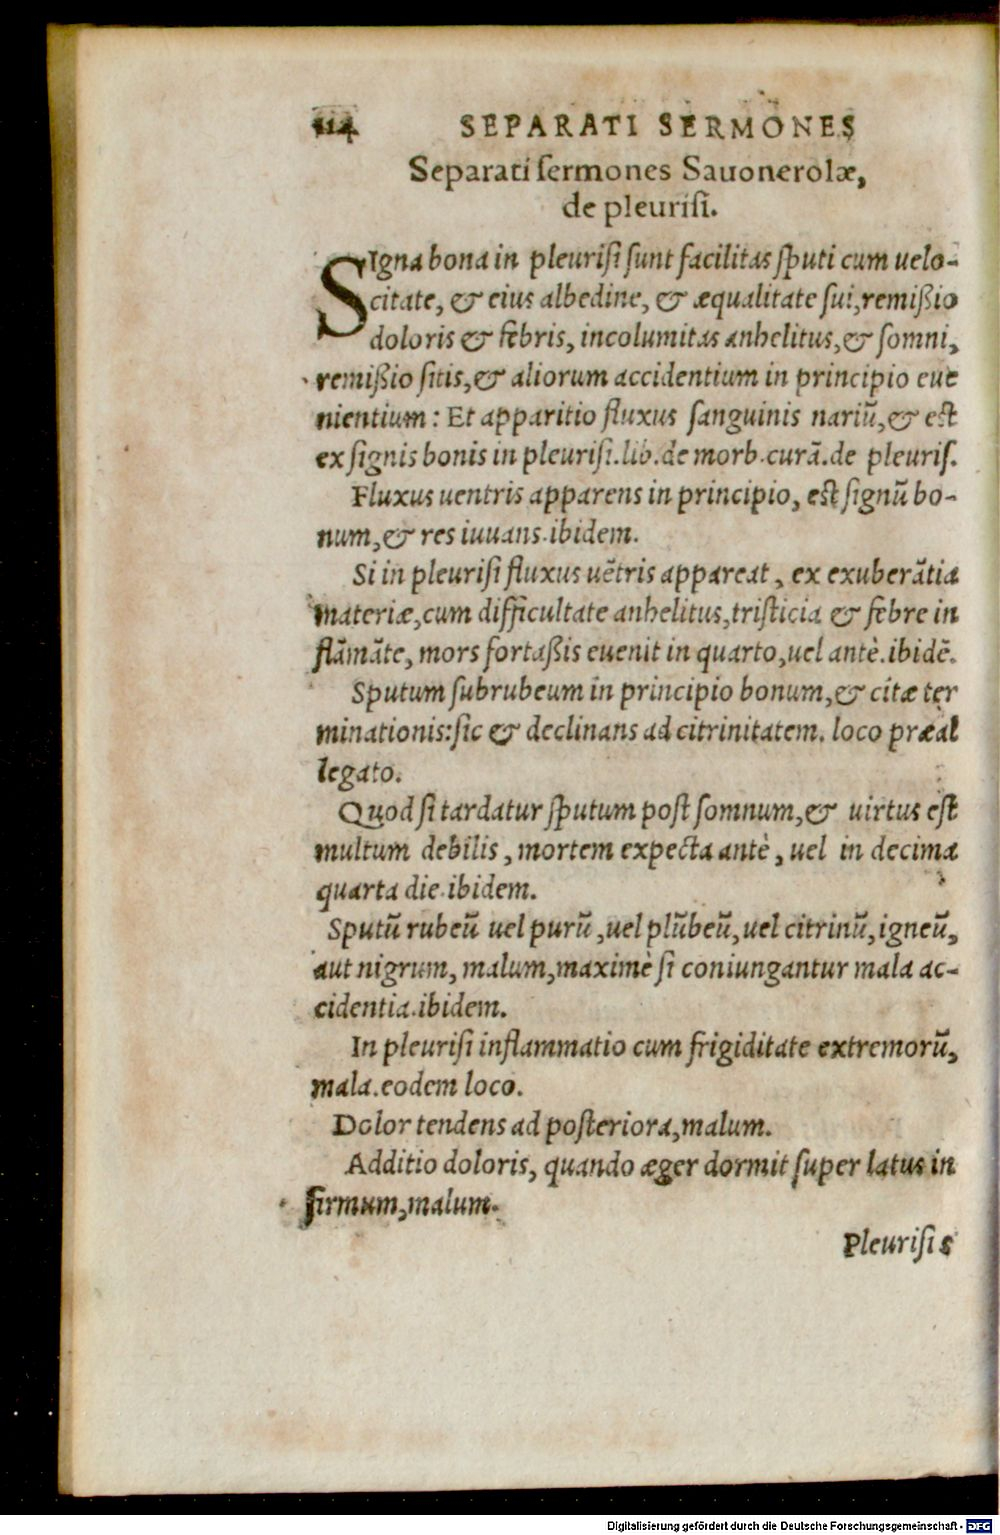 114 SEPARATI SERMONES
Separati sermones Sauonerolæ,
de pleurisi.
SIgna bona in pleurisi sunt facilitas sputi cum uelo-
citate, & eius albedine, & æqualitate sui, remißio
doloris & febris, incolumitas anhelitus, & somni,
remißio sitis, & aliorum accidentium in principio eue
nientium: Et apparitio fluxus sanguinis nariũ, & est
ex signis bonis in pleurisi. lib. de morb. curã. de pleuris.
Fluxus uentris apparens in principio, est signũ bo-
num, & res iuuans. ibidem.
Si in pleurisi fluxus uẽtris appareat, ex exuberãtia
materiæ, cum difficultate anhelitus, tristicia & febre in
flãmãte, mors fortaßis euenit in quarto, uel antè. ibidẽ.
Sputum subrubeum in principio bonum, & citæ ter
minationis: sic & declinans ad citrinitatem. loco præal
legato.
Quod si tardatur sputum post somnum, & uirtus est
multum debilis, mortem expecta antè, uel in decima
quarta die. ibidem.
Sputũ rubeũ uel purũ, uel plũbeũ, uel citrinũ, igneũ,
aut nigrum, malum, maximè si coniungantur mala ac-
cidentia. ibidem.
In pleurisi inflammatio cum frigiditate extremorũ,
mala. eodem loco.
Dolor tendens ad posteriora, malum.
Additio doloris, quando æger dormit super latus in
firmum, malum.
Pleurisis
Digitalisierung gefördert durch die Deutsche Forschungsgemeinschaft - DFG